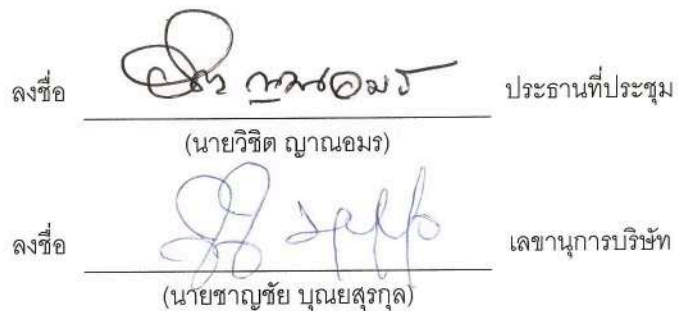 ลงชื่อ วิชิต ญาณอมร ประธานที่ประชุม
(นายวิชิต ญาณอมร)
ลงชื่อ เลขานุการบริษัท
(นายชาญชัย บุณยสุรกุล)